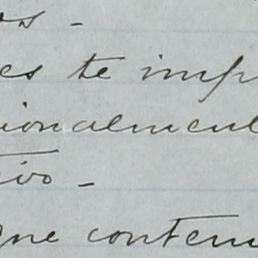 os -
es te imp
ionalment
ivo -
que conten